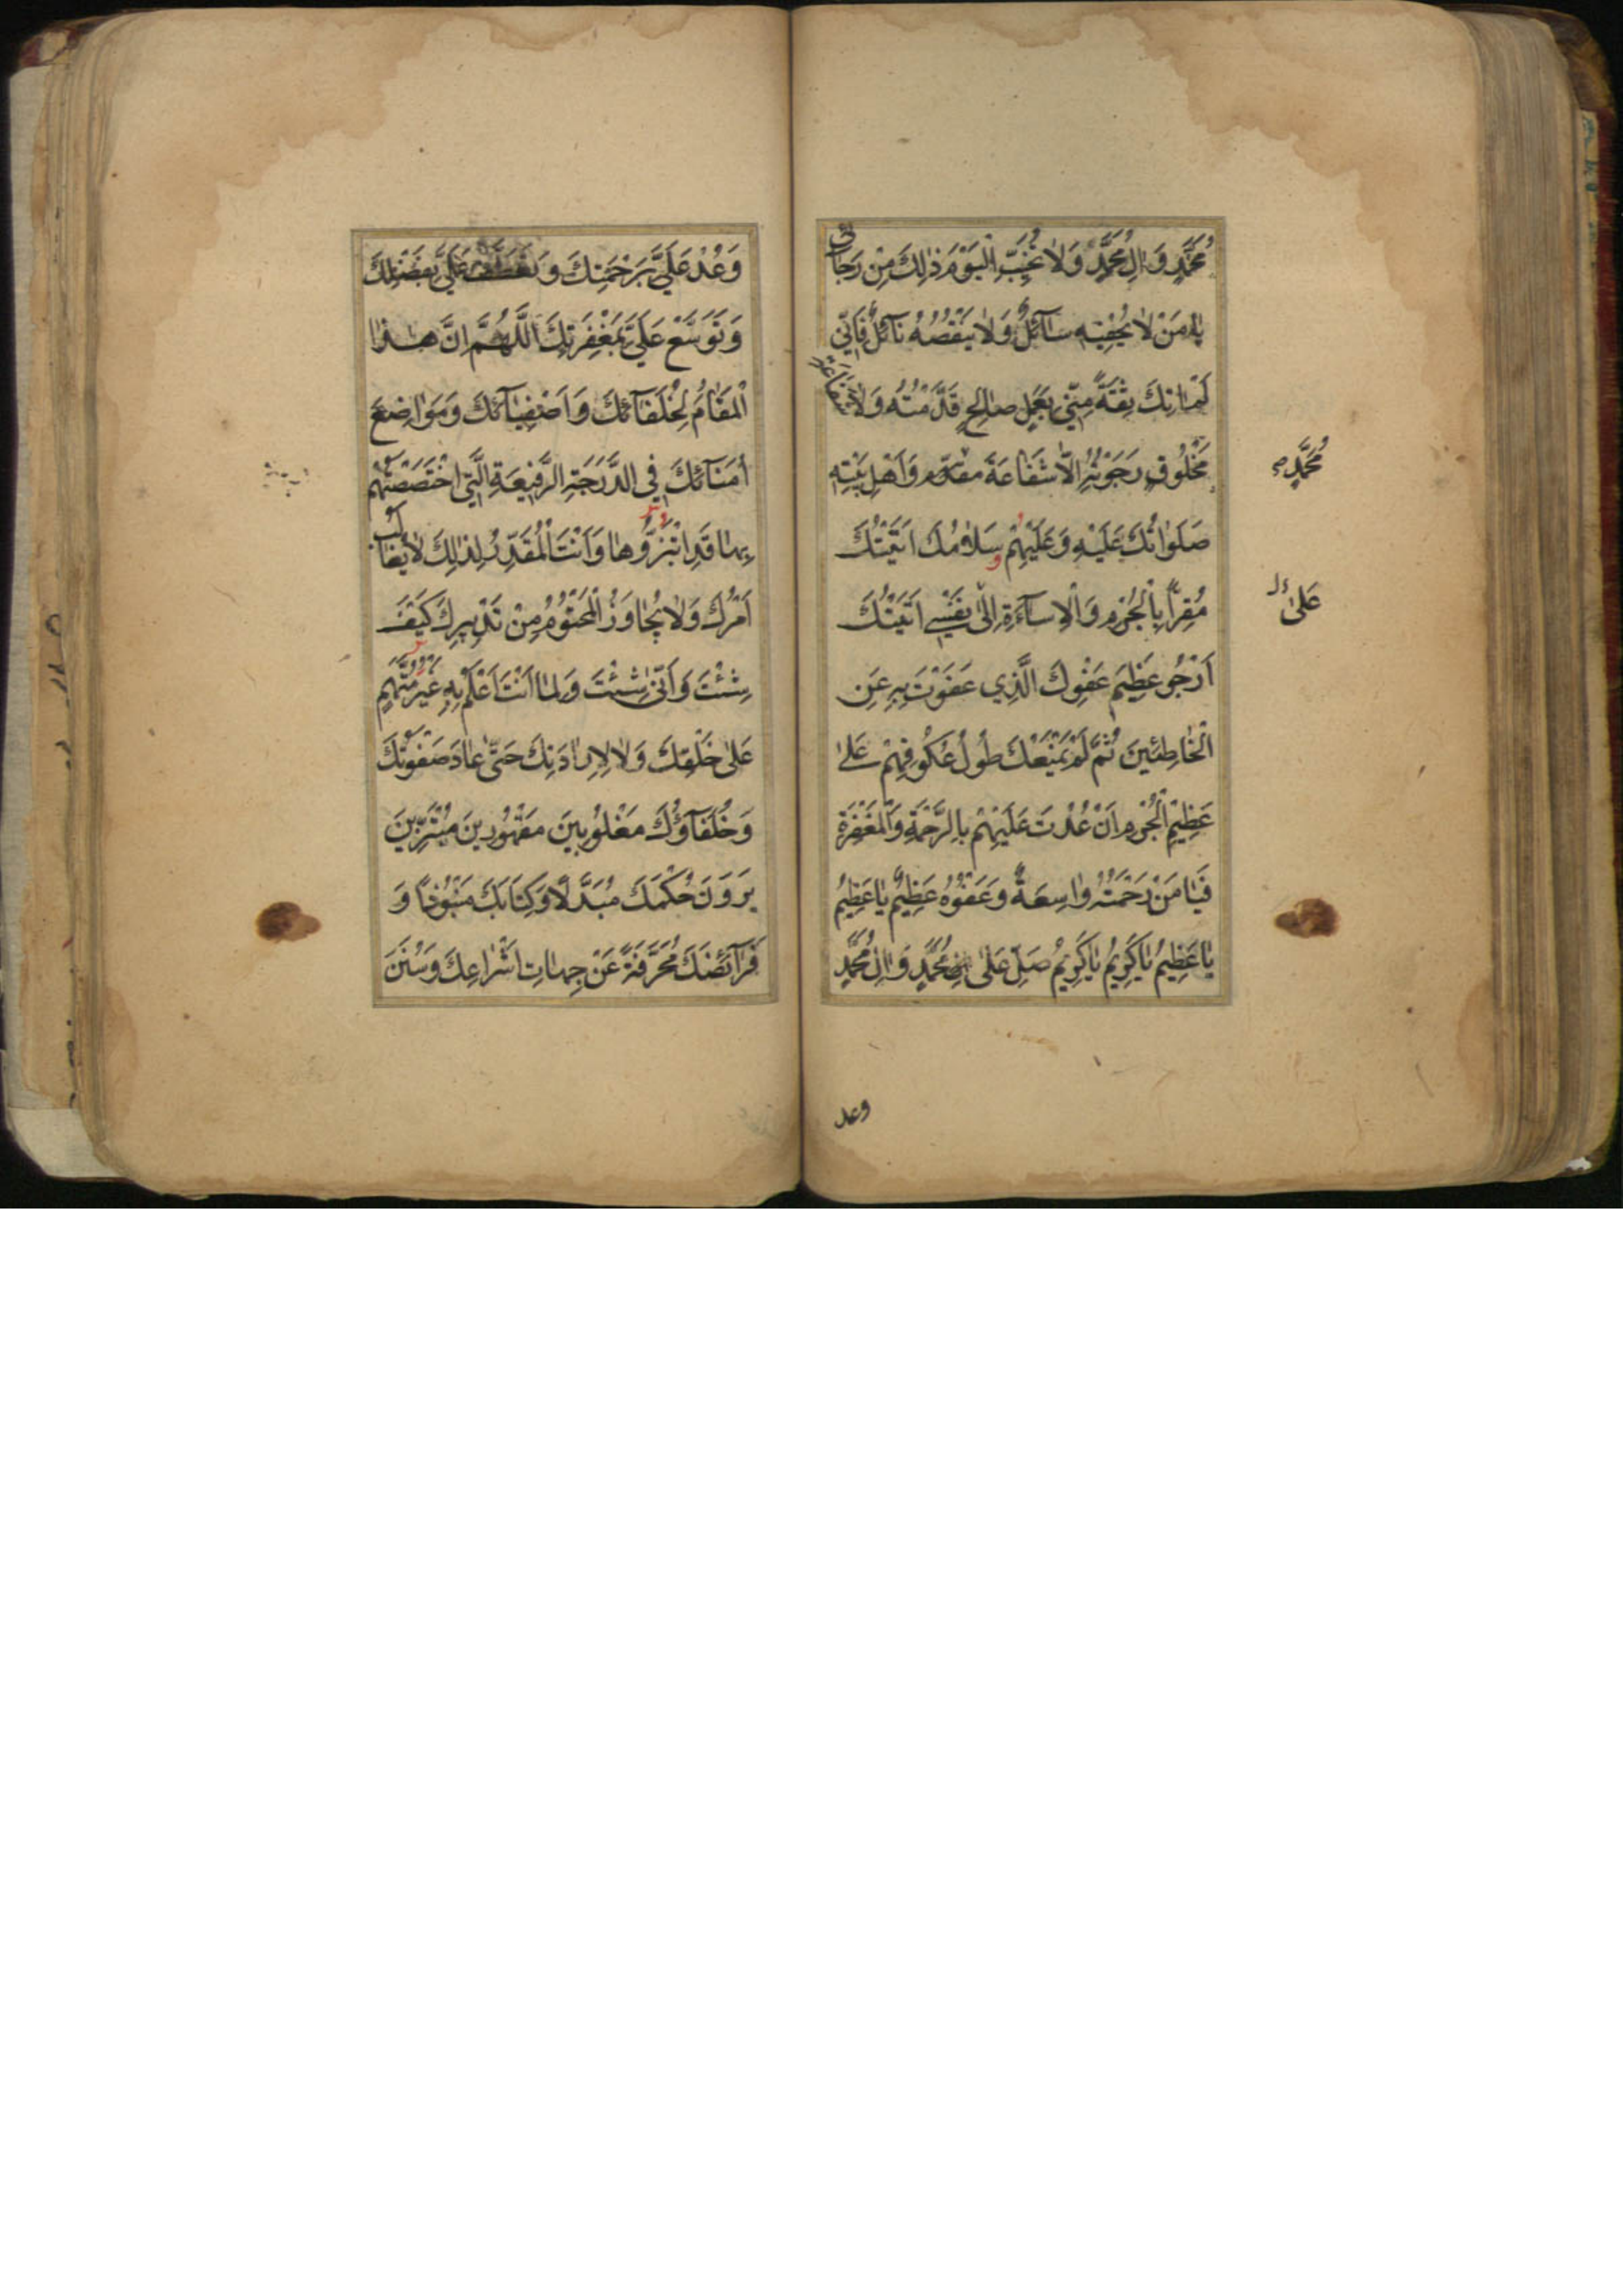 مُحَمَّدٍ وَاٰلِ مُحَمَّدٍ وَلَا تُخَيِّبِ الْيَوْمَ ذٰلِكَ مِنْ رَجَائِي
يَا مَنْ لَا يُحْفِيهِ سَآئِلٌ وَلَا يَنْقُصُهُ نَآئِلٌ فَاِنِّي
لَمْ اٰتِكَ ثِقَةً مِنِّي بِعَمَلٍ صَالِحٍ قَدَّمْتُهُ وَلَا شَفَاعَةِ
مَخْلُوقٍ رَجَوْتُهُ اِلَّا شَفَاعَةَ وَاَهْلِ بَيْتِهِ
مُحَمَّدٍ
صَلَوَاتُكَ عَلَيْهِ وَعَلَيْهِمْ وَسَلَامُكَ اَتَيْتُكَ
مُقِرًّا بِالْجُرْمِ وَالْاِسَآءَةِ اِلٰى نَفْسِي اَتَيْتُكَ
عَلىٰ
اَرْجُو عَظِيمَ عَفْوِكَ الَّذِي عَفَوْتَ بِهِ عَنِ
الْخَاطِئِينَ ثُمَّ لَمْ يَمْنَعْكَ طُولُ عُكُوفِهِمْ عَلىٰ
عَظِيمِ الْجُرْمِ اَنْ عُدْتَ عَلَيْهِمْ بِالرَّحْمَةِ وَالْمَغْفِرَةِ
فَيَا مَنْ رَحْمَتُهُ وَاسِعَةٌ وَعَفْوُهُ عَظِيمٌ يَا عَظِيمُ
يَا عَظِيمُ يَا كَرِيمُ يَا كَرِيمُ صَلِّ عَلىٰ مُحَمَّدٍ وَاٰلِ مُحَمَّدٍ
وعد
وَعُدْ عَلَيَّ بِرَحْمَتِكَ وَتَعَطَّفْ عَلَيَّ بِفَضْلِكَ
وَتَوَسَّعْ عَلَيَّ بِمَغْفِرَتِكَ اَللّٰهُمَّ اِنَّ هٰذَا
الْمَقَامَ لِخُلَفَآئِكَ وَاَصْفِيَآئِكَ وَمَوَاضِعَ
اُمَنَآئِكَ فِي الدَّرَجَةِ الرَّفِيعَةِ الَّتِي اخْتَصَصْتَهُمْ
بِهَا قَدِ ابْتَزُّوهَا وَاَنْتَ الْمُقَدِّرُ لِذٰلِكَ لَا يُغَالَبُ
اَمْرُكَ وَلَا يُجَاوَزُ الْمَحْتُومُ مِنْ تَدْبِيرِكَ كَيْفَ
شِئْتَ وَاَنّٰى شِئْتَ وَلِمَا اَنْتَ اَعْلَمُ بِهِ غَيْرُ مُتَّهَمٍ
عَلىٰ خَلْقِكَ وَلَا لِاِرَادَتِكَ حَتّٰى عَادَ صَفْوَتُكَ
وَخُلَفَآؤُكَ مَغْلُوبِينَ مَقْهُورِينَ مُبْتَزِّينَ
يَرَوْنَ حُكْمَكَ مُبَدَّلًا وَكِتَابَكَ مَنْبُوذًا وَ
فَرَآئِضَكَ مُحَرَّفَةً عَنْ جِهَاتِ اَشْرَاعِكَ وَسُنَنَ